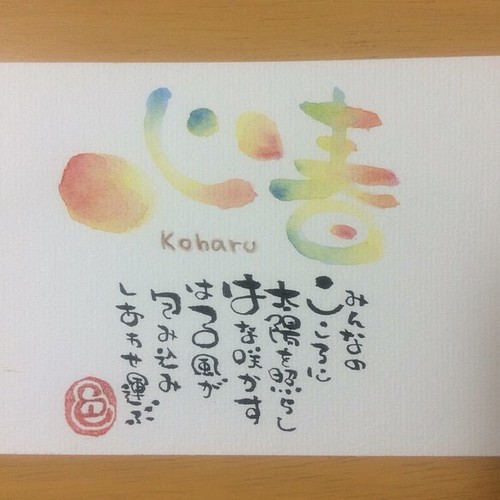 心春
Koharu
みんなの
こころに
太陽を照らし
はな咲かす
はる風が
包み込む
しあわせ運ぶ